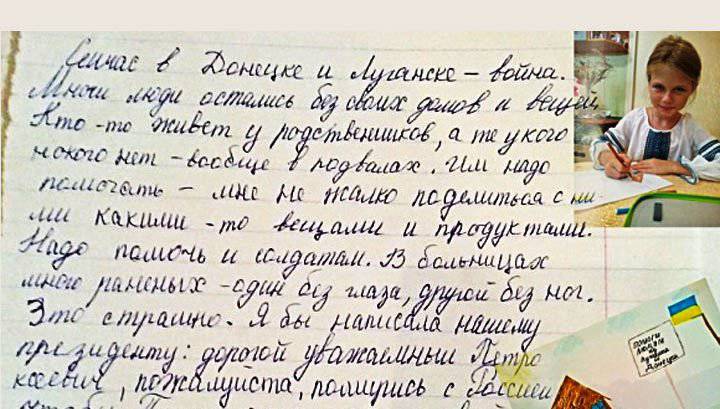 Сейчас в Донецке и Луганске - война.
Многи люди остались без своих домов и вещей
Кто-то живёт у родственников, а те у кого
никого нет - вообще в подвалах. Им надо
помогать - мне не жалко поделиться с ни
ми какими-то вещами и продуктами.
Надо помочь и солдатам. В больницах
много раненых - один без глаза, другой без ног.
Это страшно. Я бы написала нашему
президенту: дорогой уважаемный Петро
ксеевич, пожалуйста, помирись с Россией
чтобы
помоги
людям
из
Луганска
и
Донецка